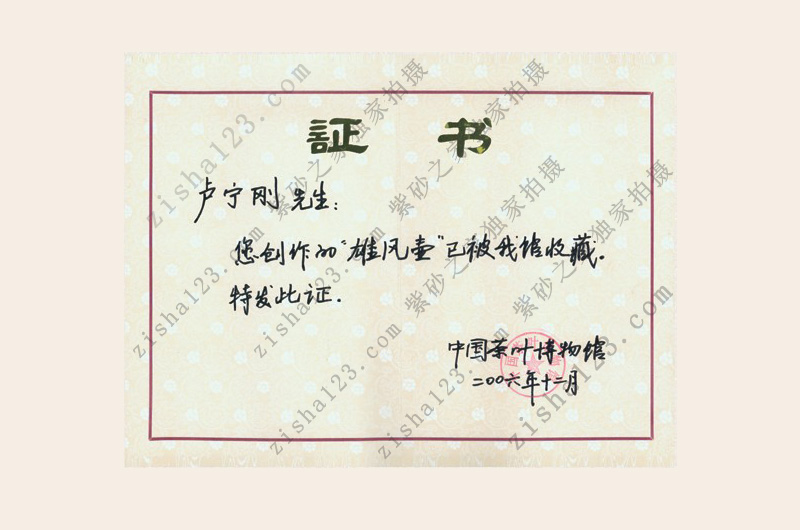 証书
卢宁刚先生：
您创作的“雄风壶”已被我馆收藏。
特发此证.
中国茶叶博物馆
二〇〇六年十二月
zisha123.com 紫砂之家独家拍摄
zisha123.com 紫砂之家独家拍摄
zisha123.com 紫砂之家独家拍摄
zisha123.com 紫砂之家独家拍摄
zisha123.com
zisha123.com